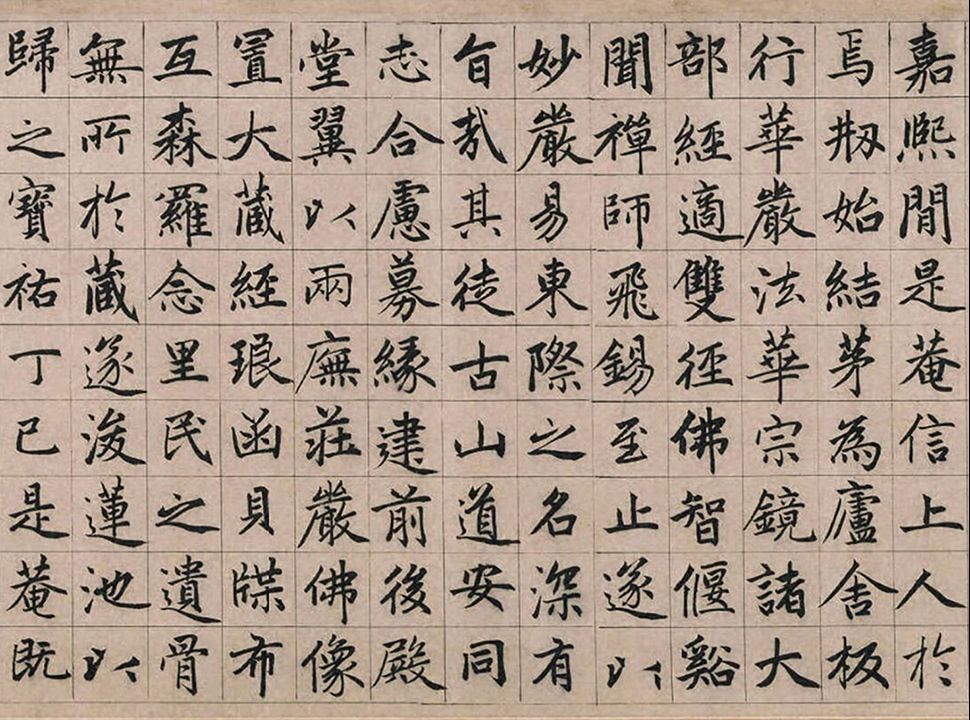 嘉熙閒是菴信上人於
焉刱始結茅為廬舍板
行華嚴法華宗鏡諸大
部經適雙徑佛智偃谿
聞禪師飛錫至止遂以
妙嚴易東際之名深有
旨哉其徒古山道安同
志合慮募緣建前後殿
堂翼以兩廡莊嚴佛像
置大藏經琅函貝牒布
互森羅念里民之遺骨
無所於藏遂浚蓮池以
歸之寶祐丁巳是菴既